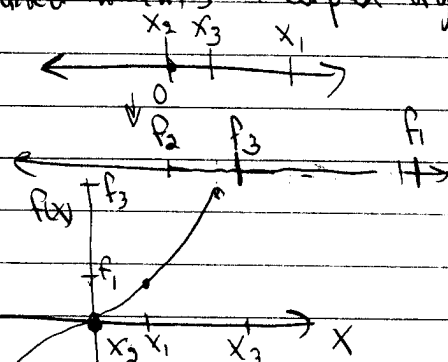 x₂ x₃ x₁
0
f₂ f₃ f₁
f₃
f(x)
f₁
x₂ x₁ x₃ X